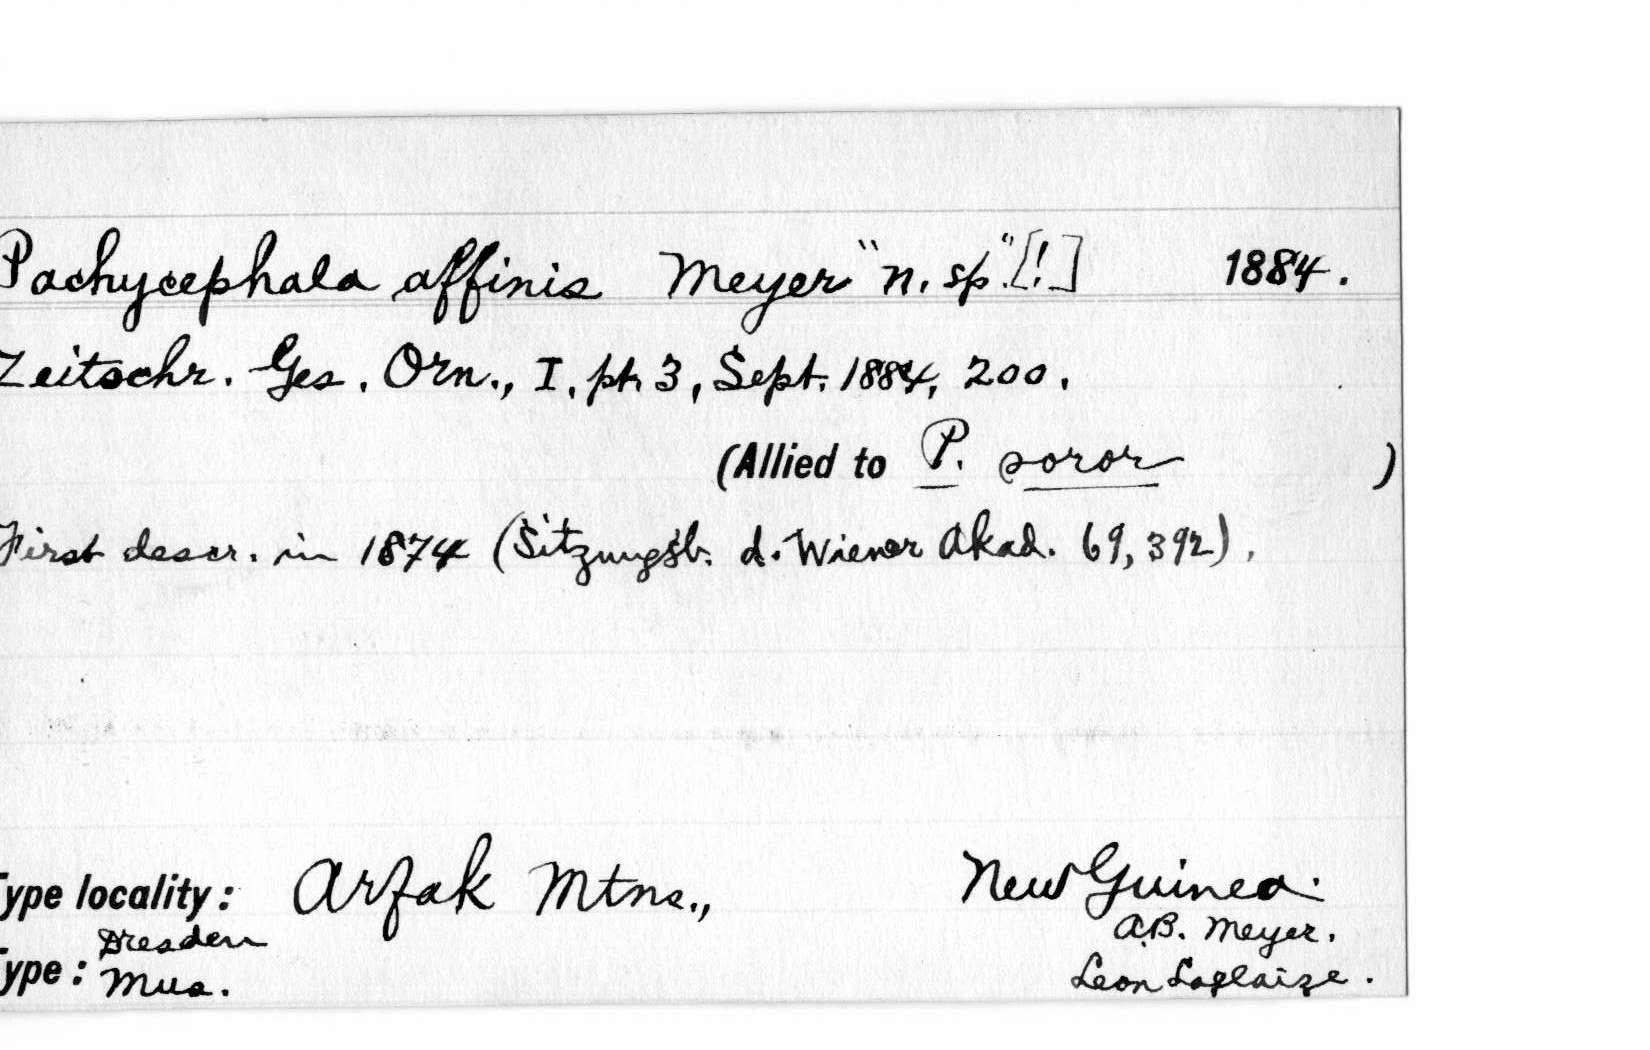 Pachycephala affinis Meyer "n. sp." [!] 1884.
Zeitschr. Ges. Orn., I, pt. 3, Sept. 1884, 200.
(Allied to P. soror )
First descr. in 1874 (Sitzungsb. d. Wiener Akad. 69, 392).
Type locality: Arfak Mtns., New Guinea.
A.B. Meyer.
Type: Dresden Mus.
Leon Laglaize.